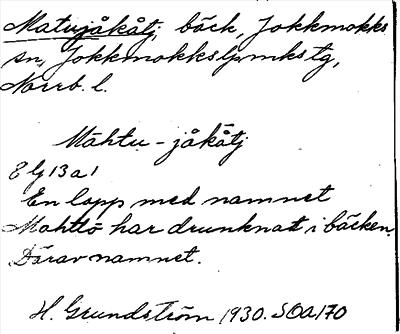 Matujåkåtj, bäck, Jokkmokks
sn, Jokkmokks lpmkstg,
Norrb. l.
Måhtu-jåkåtj
E lj 13 a 1
En lapp med namnet
Mahttö har drunknat i bäcken.
Därav namnet.
H. Grundström 1930. SOA 170